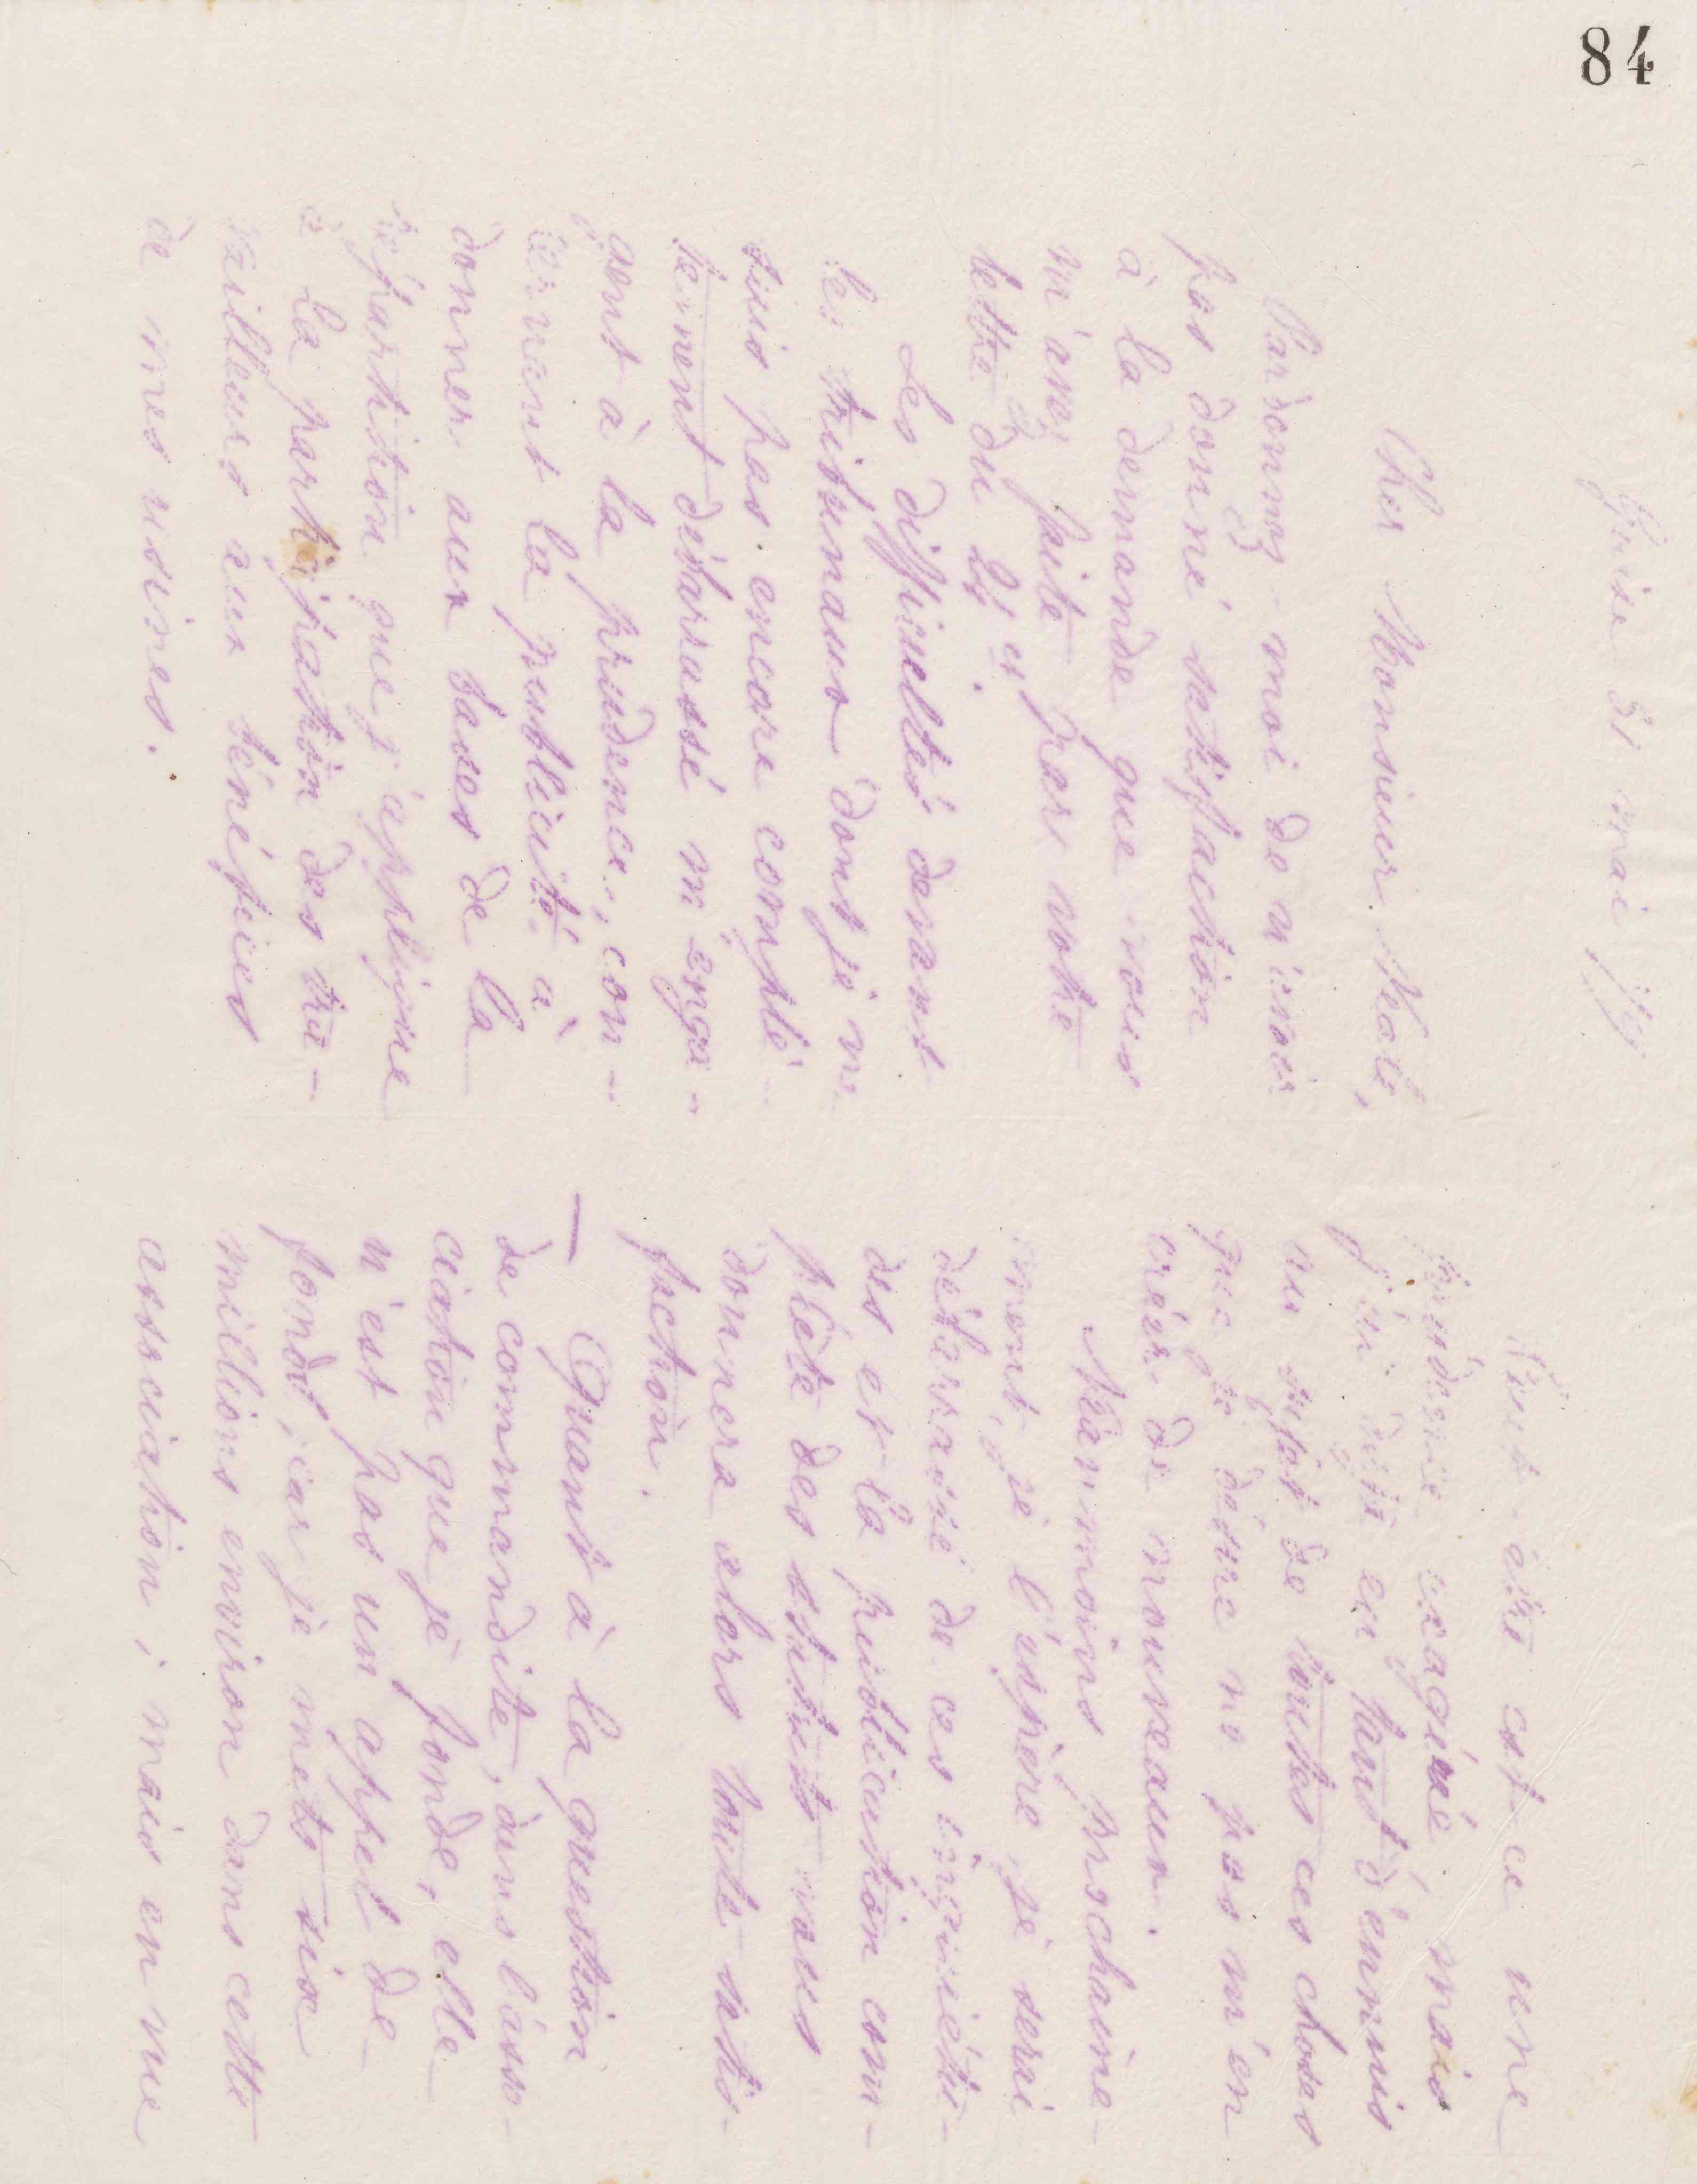 84
Guise 31 mai
Cher Monsieur Neale,
Pardonnez-moi de n'avoir
pas donné satisfaction
à la demande que vous
m'avez faite par votre
lettre du
Les difficultés devant
les tribunaux dont je ne
suis pas encore complè-
tement débarrassé m'enga-
gent à la prudence, con-
cernant la publicité à
donner aux bases de la
répartition que j'applique
à la participation des tra-
vailleurs aux bénéfices
de mes usines.
Peut-être est-ce une
prudence exagérée, mais
j'ai déjà eu tant d'ennuis
au sujet de toutes ces choses
que je désire ne pas m'en
créer de nouveaux.
Néanmoins prochaine-
ment, je l'espère, je serai
débarrassé de ces inquiétu-
des et la publication com-
plète des statuts vous
donnera alors toute satis-
faction.
— Quant à la question
de commandite, dans l'asso-
ciation que je fonde, elle
n'est pas un appel de
fonds, car je mets six
millions environ dans cette
association ; mais en vue